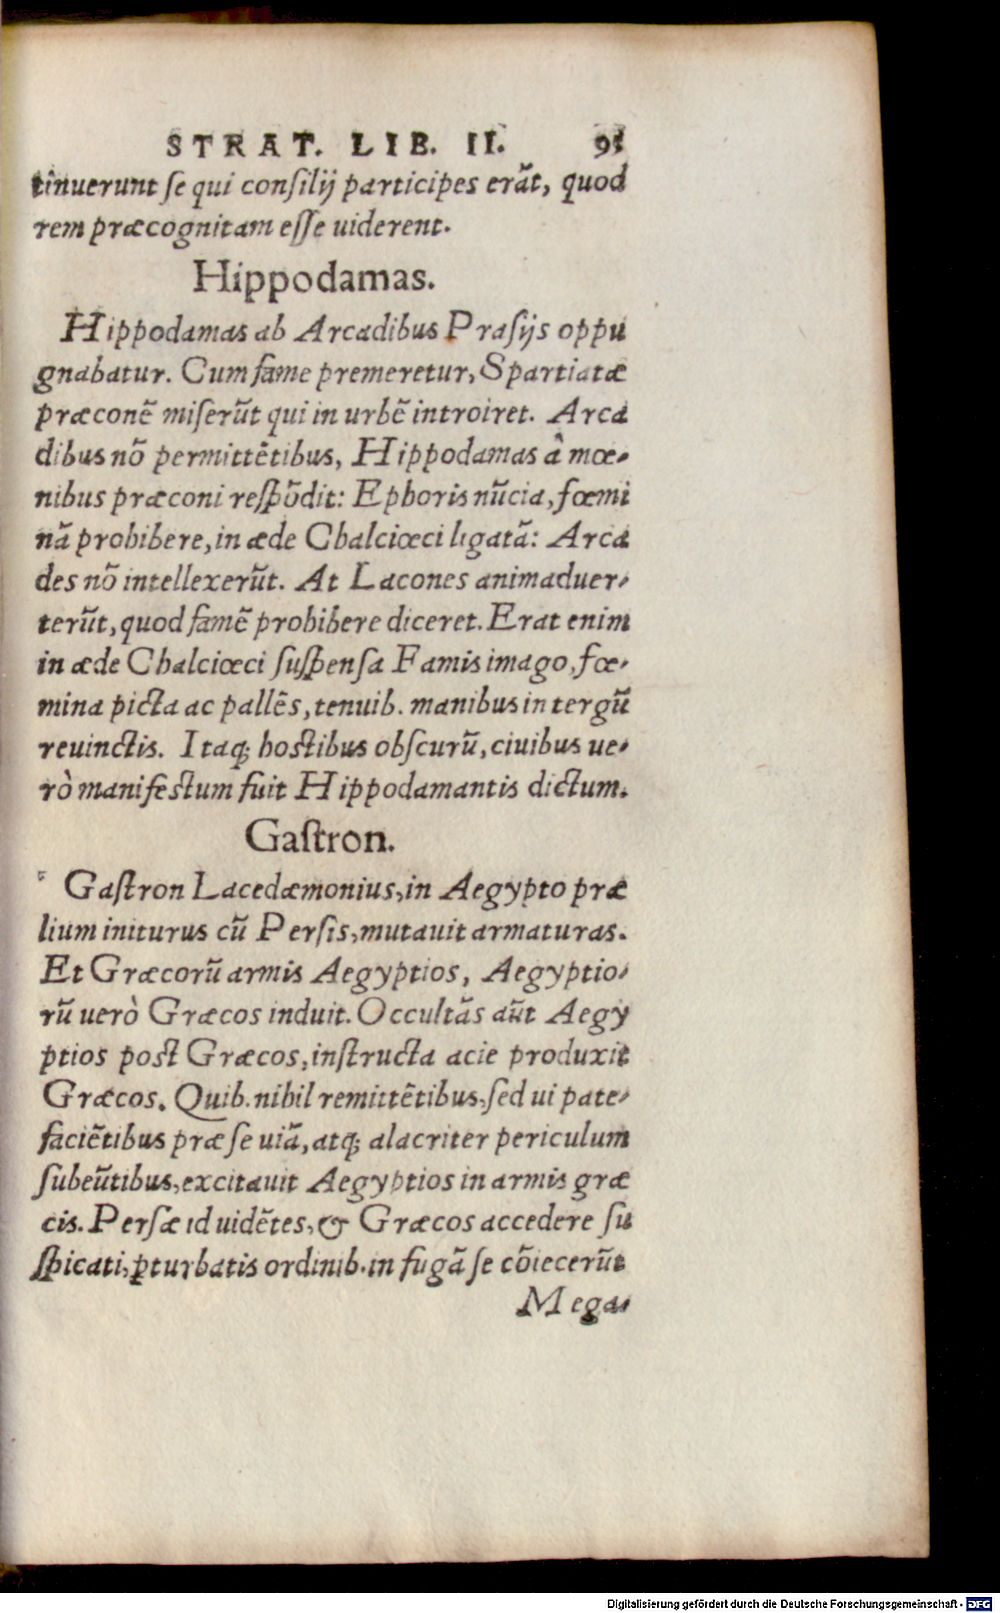 STRAT. LIB. II. 91
tinuerunt se qui consilij participes erāt, quod
rem præcognitam esse uiderent.
Hippodamas.
Hippodamas ab Arcadibus Prasijs oppu
gnabatur. Cum fame premeretur, Spartiatæ
præconē miserūt qui in urbē introiret. Arca
dibus nō permittētibus, Hippodamas â mœ-
nibus præconi respōdit: Ephoris nūcia, fœmi
nā prohibere, in æde Chalciœci ligatā: Arca
des nō intellexerūt. At Lacones animaduer-
terūt, quod famē prohibere diceret. Erat enim
in æde Chalciœci suspensa Famis imago, fœ-
mina picta ac pallēs, tenuib. manibus in tergū
reuinctis. Itaq; hostibus obscurū, ciuibus ue-
rò manifestum fuit Hippodamantis dictum.
Gastron.
Gastron Lacedæmonius, in Aegypto præ
lium initurus cū Persis, mutauit armaturas.
Et Græcorū armis Aegyptios, Aegyptio-
rū uerò Græcos induit. Occultās aūt Aegy
ptios post Græcos, instructa acie produxit
Græcos. Quib. nihil remittētibus, sed ui pate-
faciētibus præ se uiā, atq; alacriter periculum
subeūtibus, excitauit Aegyptios in armis græ
cis. Persæ id uidētes, & Græcos accedere su
spicati, ꝑturbatis ordinib. in fugā se cōiecerūt
Mega-
Digitalisierung gefördert durch die Deutsche Forschungsgemeinschaft - DFG